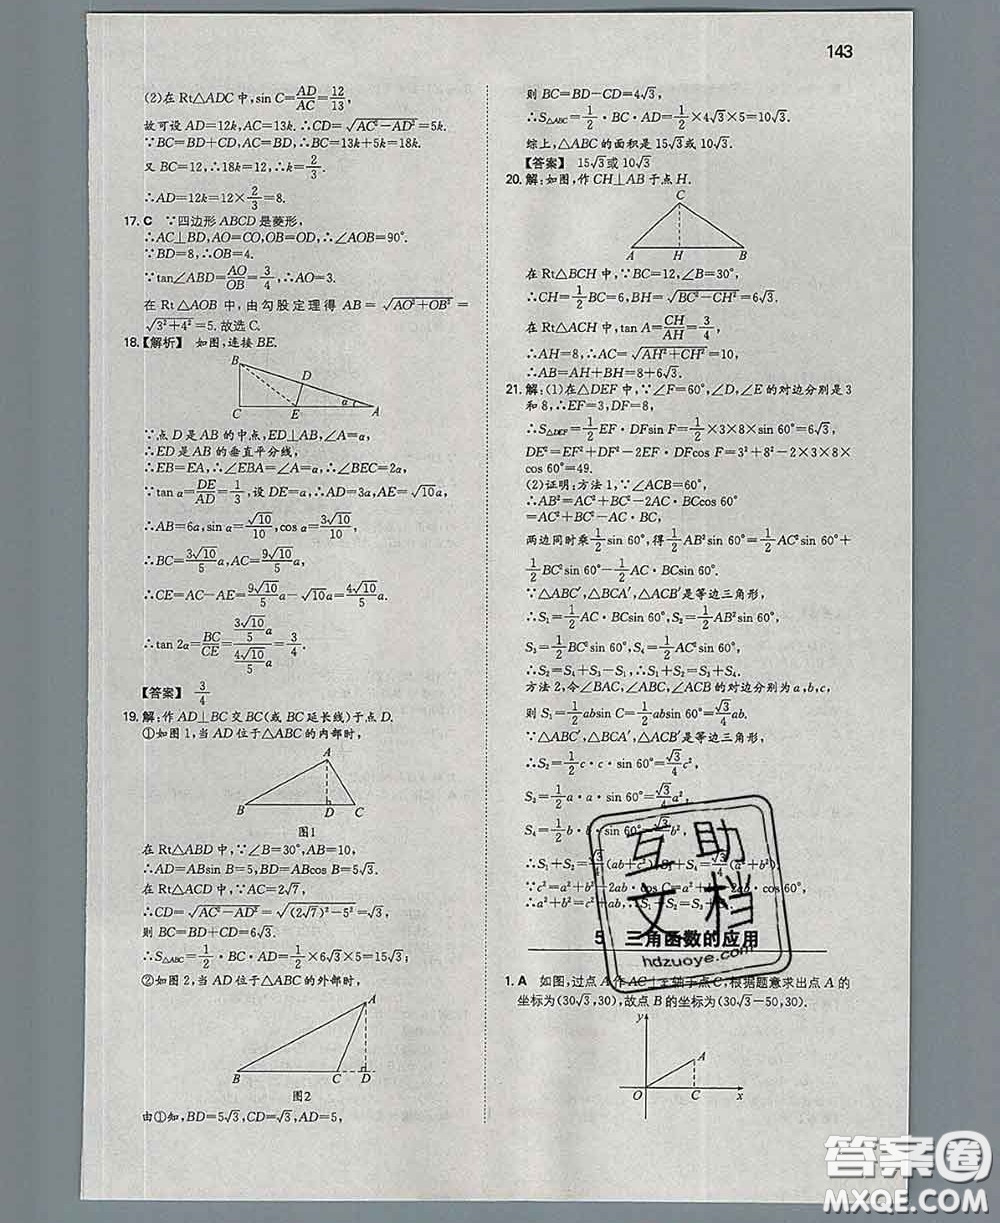 143
(2)在 Rt△ADC 中,sin C=AD/AC=12/13,
故可设 AD=12k,AC=13k. ∴CD=√(AC²-AD²)=5k.
∵BC=BD+CD,AC=BD,∴BC=13k+5k=18k.
又 BC=12,∴18k=12,∴k=2/3.
∴AD=12k=12×2/3=8.
17. C ∵四边形 ABCD 是菱形,
∴AC⊥BD,AO=CO,OB=OD,∴∠AOB=90°.
∵BD=8,∴OB=4.
∵tan∠ABD=AO/OB=3/4,∴AO=3.
在 Rt△AOB 中,由勾股定理得 AB=√(AO²+OB²)=
√(3²+4²)=5.故选 C.
18.【解析】 如图,连接 BE.
B
D
C
E
α
A
∵点 D 是 AB 的中点,ED⊥AB,∠A=α,
∴ED 是 AB 的垂直平分线,
∴EB=EA,∴∠EBA=∠A=α,∴∠BEC=2α,
∵tan α=DE/AD=1/3,设 DE=a,∴AD=3a,AE=√10a,
∴AB=6a,sin α=√10/10,cos α=3√10/10,
∴BC=3√10/5 a,AC=9√10/5 a,
∴CE=AC-AE=9√10/5 a-√10a=4√10/5 a,
∴tan 2α=BC/CE=(3√10/5 a)/(4√10/5 a)=3/4.
【答案】 3/4
19. 解:作 AD⊥BC 交 BC(或 BC 延长线)于点 D.
①如图 1,当 AD 位于△ABC 的内部时,
A
B
D
C
图1
在 Rt△ABD 中,∵∠B=30°,AB=10,
∴AD=ABsin B=5,BD=ABcos B=5√3.
在 Rt△ACD 中,∵AC=2√7,
∴CD=√(AC²-AD²)=√((2√7)²-5²)=√3,
则 BC=BD+CD=6√3,
∴S△ABC=1/2·BC·AD=1/2×6√3×5=15√3;
②如图 2,当 AD 位于△ABC 的外部时,
A
B
C
D
图2
由①知,BD=5√3,CD=√3,AD=5,
则 BC=BD-CD=4√3,
∴S△ABC=1/2·BC·AD=1/2×4√3×5=10√3.
综上,△ABC 的面积是 15√3或 10√3.
【答案】 15√3或 10√3
20. 解:如图,作 CH⊥AB 于点 H.
C
A
H
B
在 Rt△BCH 中,∵BC=12,∠B=30°,
∴CH=1/2 BC=6,BH=√(BC²-CH²)=6√3.
在 Rt△ACH 中,tan A=CH/AH=3/4,
∴AH=8,∴AC=√(AH²+CH²)=10,
∴AB=AH+BH=8+6√3.
21. 解:(1)在△DEF 中,∵∠F=60°,∠D,∠E 的对边分别是 3
和 8,∴EF=3,DF=8,
∴S△DEF=1/2 EF·DFsin F=1/2×3×8×sin 60°=6√3,
DE²=EF²+DF²-2EF·DFcos F=3²+8²-2×3×8×
cos 60°=49.
(2)证明:方法 1,∵∠ACB=60°,
∴AB²=AC²+BC²-2AC·BCcos 60°
=AC²+BC²-AC·BC,
两边同时乘 1/2 sin 60°,得 1/2 AB²sin 60°=1/2 AC²sin 60°+
1/2 BC²sin 60°-1/2 AC·BCsin 60°,
∵△ABC′,△BCA′,△ACB′是等边三角形,
∴S₁=1/2 AC·BCsin 60°,S₂=1/2 AB²sin 60°,
S₃=1/2 BC²sin 60°,S₄=1/2 AC²sin 60°,
∴S₂=S₄+S₃-S₁,∴S₁+S₂=S₃+S₄.
方法 2,令∠BAC,∠ABC,∠ACB 的对边分别为 a,b,c,
则 S₁=1/2 absin C=1/2 absin 60°=√3/4 ab.
∵△ABC′,△BCA′,△ACB′是等边三角形,
∴S₂=1/2 c·c·sin 60°=√3/4 c²,
S₃=1/2 a·a·sin 60°=√3/4 a²,
S₄=1/2 b·b·sin 60°=√3/4 b²,
∴S₁+S₂=√3/4(ab+c²),S₃+S₄=√3/4(a²+b²),
∵c²=a²+b²-2ab·cos C=a²+b²-2ab·cos 60°,
∴a²+b²=c²+ab,∴S₁+S₂=S₃+S₄.
5 三角函数的应用
1. A 如图,过点 A 作 AC⊥x 轴于点 C,根据题意求出点 A 的
坐标为(30√3,30),故点 B 的坐标为(30√3-50,30).
y
A
O
C
x
互助
文档
hdzuoye.com
答案圈
MXQE.COM